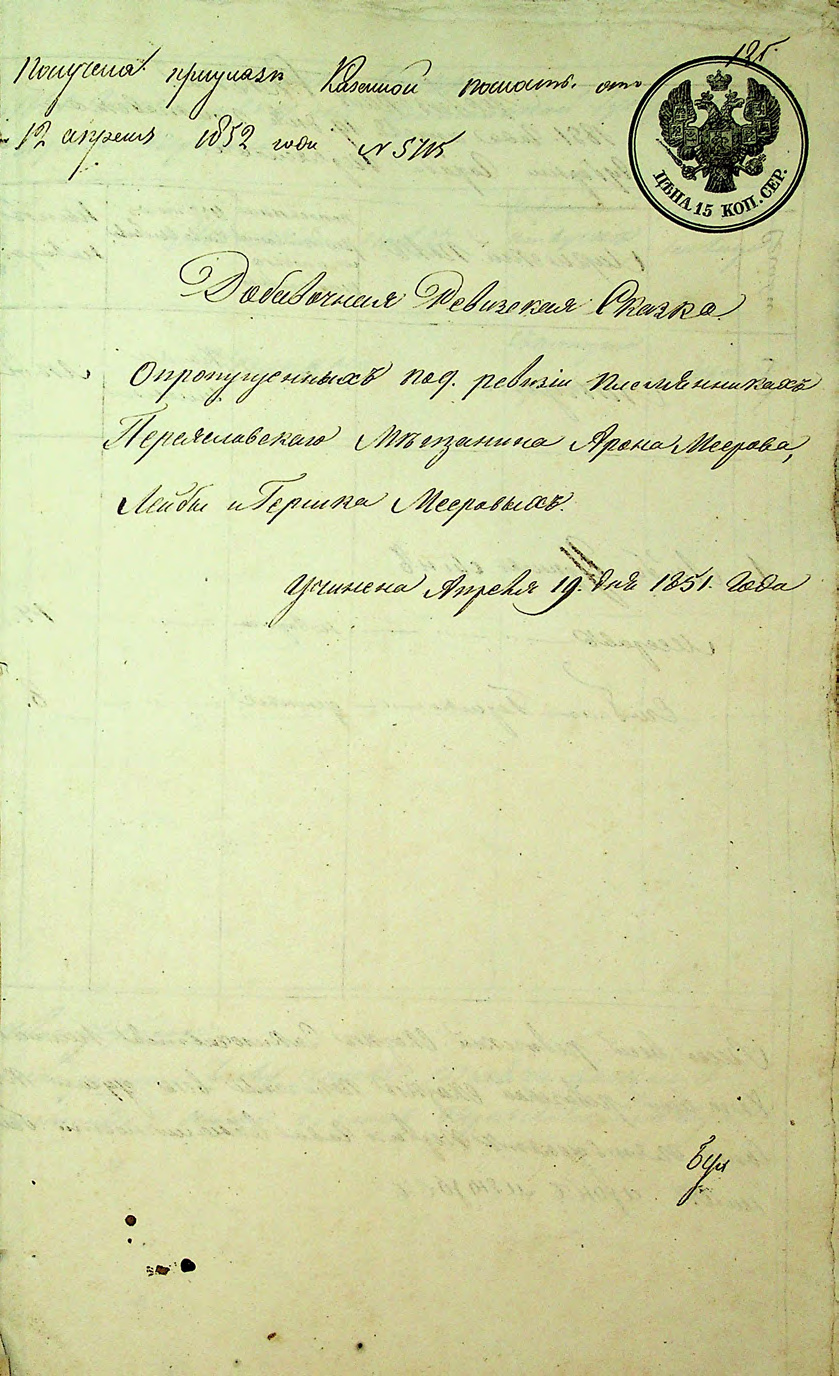 125.
Получена при указѣ Казенной палаты. отъ
12 апреля 1852 года № 5715
ЦѢНА 15 КОП. СЕР.
Добавочная Ревизская Сказка
О пропущенныхъ по 9. ревизіи племянникахъ
Переяславскаго Мѣщанина Арона Меерова,
Лейбы и Гершка Мееровыхъ.
Учинена Апреля 19. дня 1851. Года